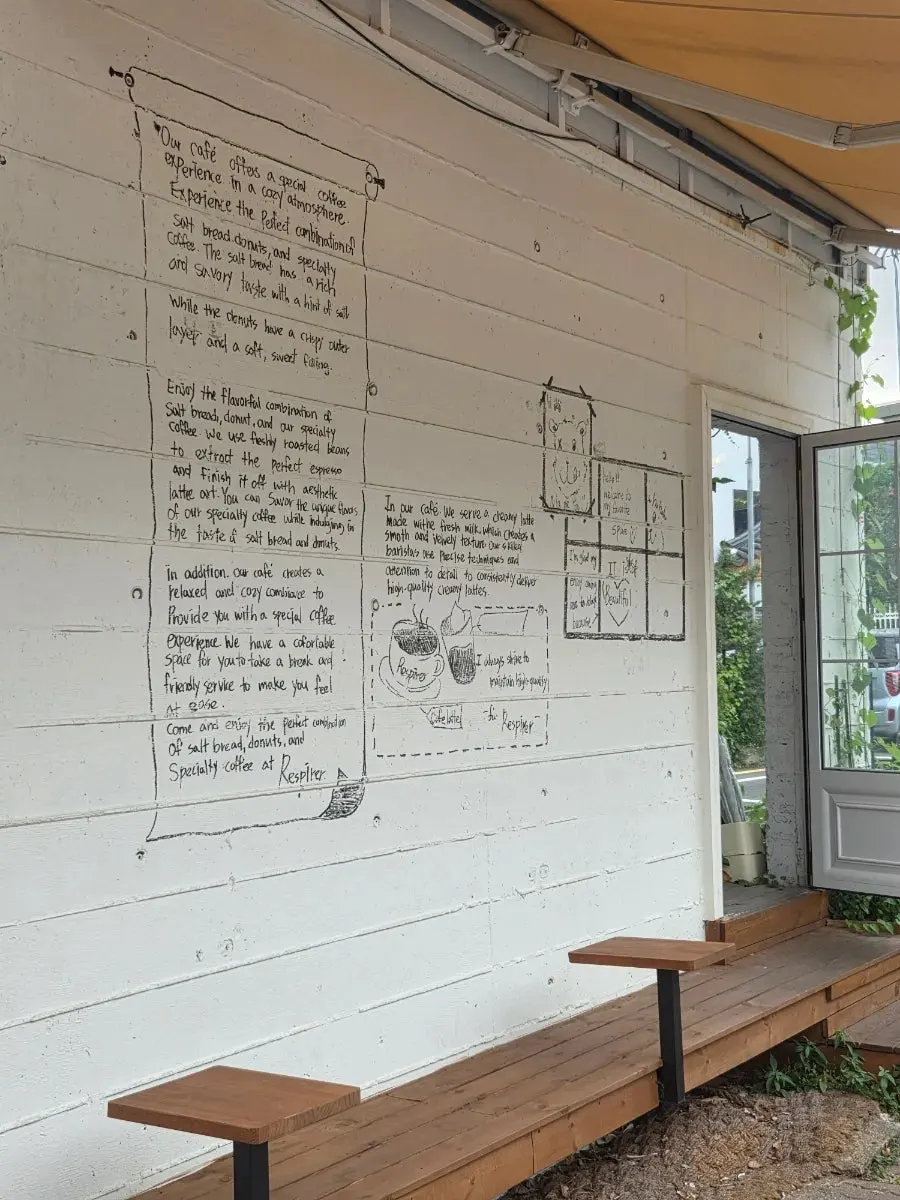 "Our café offers a special coffee
experience in a cozy atmosphere.
Experience the Perfect combination of
salt bread, donuts, and specialty
coffee. The salt bread has a rich
and savory taste with a hint of salt
While the donuts have a crispy outer
layer and a soft, sweet filling.
Enjoy the flavorful combination of
Salt bread, donut, and our specialty
coffee. We use freshly roasted beans
to extract the perfect espresso
and Finish it off with aesthetic
latte art. You can Savor the unique flavors
of our specialty coffee while indulging in
the taste of salt bread and donuts.
In addition. our café creates a
relaxed and cozy combiance to
Provide you with a special coffee
experience. We have a cofortable
space for you to take a break and
friendly service to make you feel
at ease.
Come and enjoy the perfect combination
of salt bread, donuts, and
Specialty coffee at Respirer
In our café. We serve a creamy latte
made withe fresh milk. which creates a
smooth and velvety texture. Our skilled
baristas use Precise techniques and
attention to detail to consistently deliver
high-quality creamy lattes.
Respirer
I always strive to
maintain high-quality
Cafe latte
Respirer
welcome to
my favorite
space
I'm glad my
Beautiful
because